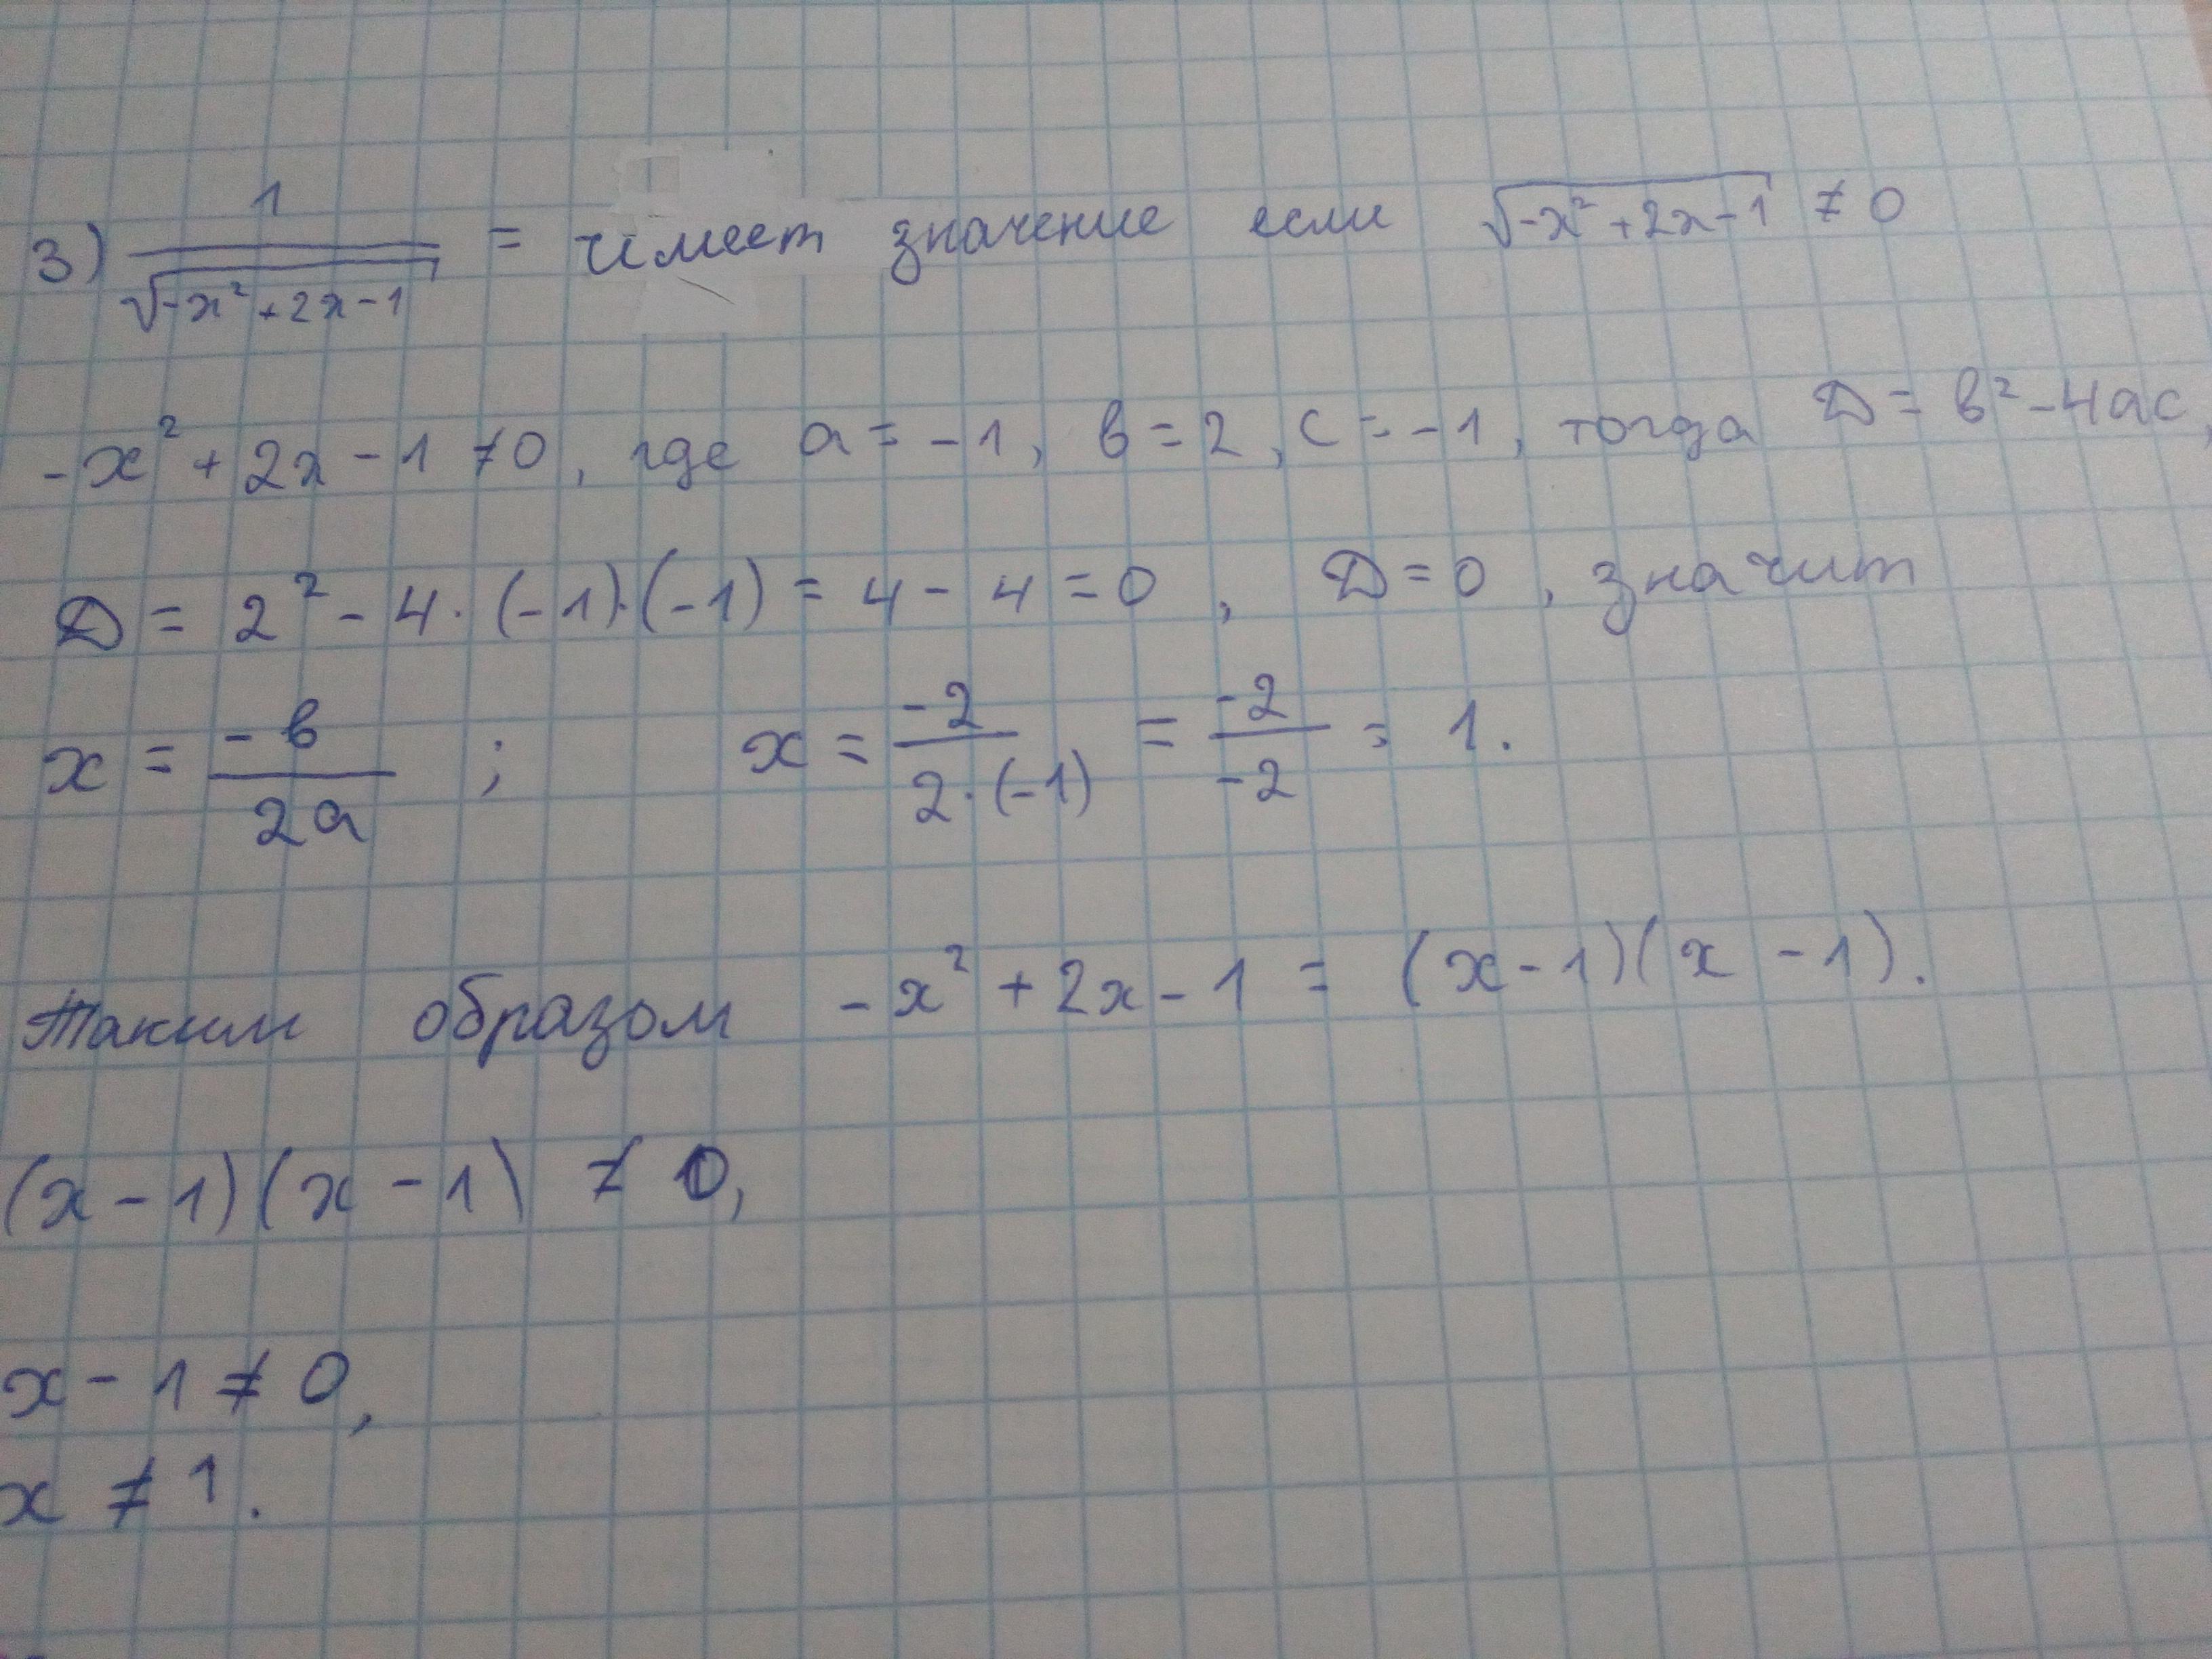 3) 1/√(-x²+2x-1) = имеет значение если √(-x²+2x-1) ≠ 0
-x² + 2x - 1 ≠ 0, где a = -1, в = 2, c = -1, тогда D = в² - 4ac,
D = 2² - 4·(-1)·(-1) = 4 - 4 = 0, D = 0, значит
x = -в/2a ; x = -2/2·(-1) = -2/-2 = 1.
Таким образом -x² + 2x - 1 = (x-1)(x-1).
(x-1)(x-1) ≠ 0,
x - 1 ≠ 0,
x ≠ 1.